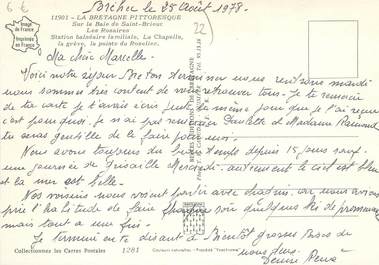 6 €
Binic le 25 août 1975.
11901 - LA BRETAGNE PITTORESQUE
Sur la Baie de Saint-Brieuc
Les Rosaires
Station balnéaire familiale, La Chapelle,
la grève, la pointe du Roselier.
Image de France
Imprimée en France
22
Ma chère Marcelle
Voici notre séjour Breton terminé nous rentrons mardi
nous sommes très content de vous retrouver tous. Je te remercie
de ta carte je t'avais écris juste le même jour que je l'ai reçue
c'est pourquoi je n'ai pas remercier Paulette et Madame Raimond
tu seras gentille de le faire pour moi.
Nous avons toujours du beau temps depuis 15 jours sauf
une journée de Mercredi autrement le ciel est bleu
et la mer est belle.
Nos voisins nous voient partir avec chagrin car nous avons
pris l'habitude de faire chaque soir quelques kms de promenade
mais tout a une fin.
Je termine en te disant à Bientôt grosses Bises de
nous deux.
Denise René
Collectionnez les Cartes Postales
1281
Couleurs naturelles